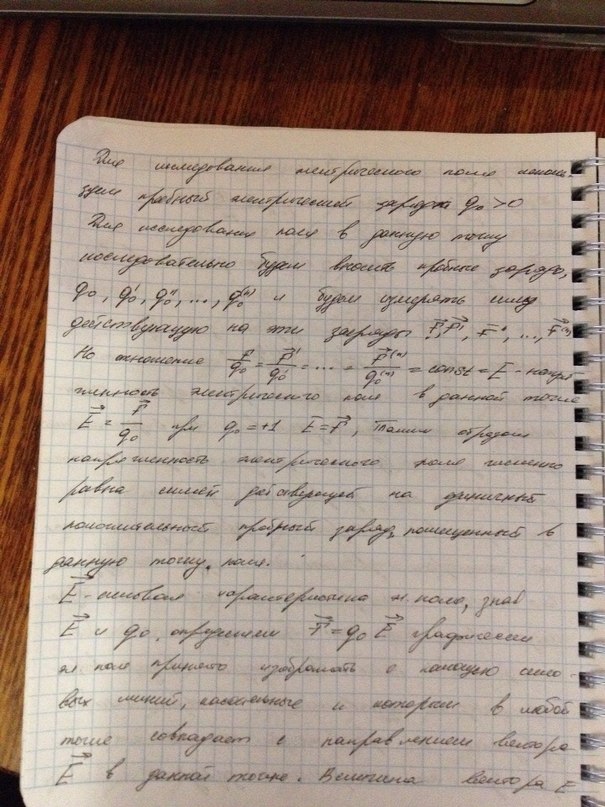 Для исследования электрического поля исполь-
зуем пробный электрический заряд q₀ > 0
Для исследования поля в данную точку
последовательно будем вносить пробные заряды,
q₀, q₀', q₀'', ..., q₀⁽ⁿ⁾ и будем измерять силу
действующую на эти заряды F⃗, F⃗', F⃗'', ..., F⃗⁽ⁿ⁾
Но отношение F⃗/q₀ = F⃗'/q₀' = ... = F⃗⁽ⁿ⁾/q₀⁽ⁿ⁾ = const = E⃗ - напря
женность электрического поля в данной точке
E⃗ = F⃗/q₀ при q₀ = +1 E⃗ = F⃗, Таким образом
напряженность электрического поля численно
равна силе действующей на единичный
положительный пробный заряд, помещенный в
данную точку поля.
E⃗ - силовая характеристика эл. поля, зная
E⃗ и q₀, определяем F⃗ = q₀ E⃗ графически
эл. поле принято изображать с помощью сило-
вых линий, касательные к которым в любой
точке совпадает с направлением вектора
E⃗ в данной точке. Величина вектора E